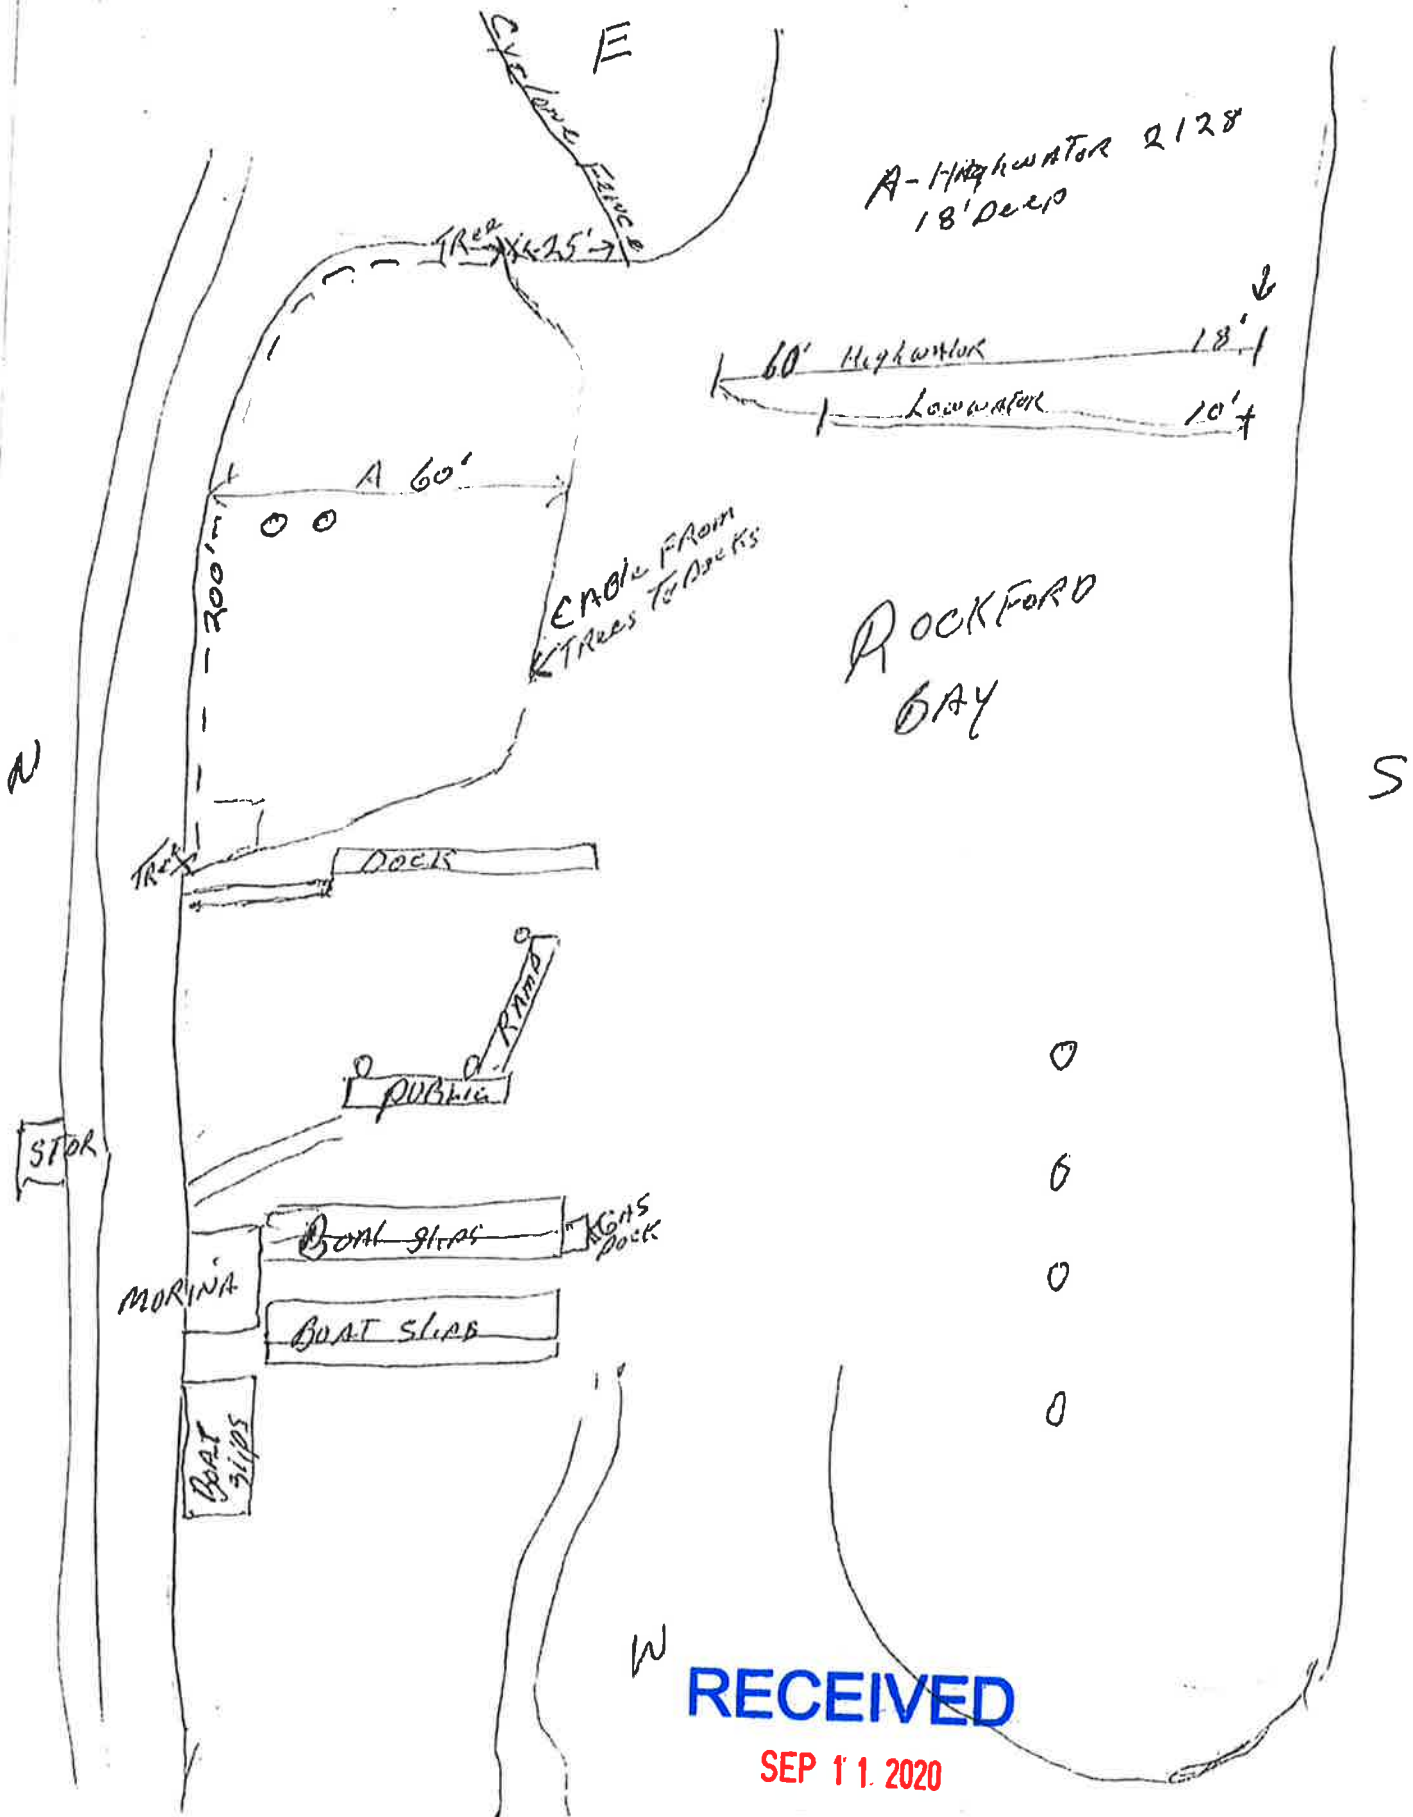 E
Cyclone Fence
A-Highwator 2128
18' Deep
TRee
25'
60' Highwator 18'
Lowwator 10'
A 60'
200'
CABle FRom
TRees To Docks
ROCKFORD
BAY
N
S
TRee
DOCK
RAMP
PUBLIC
STOR
BOAt slips
GAS
DOCK
MORINA
BOAT Slips
BOAT
slips
W
RECEIVED
SEP 11 2020